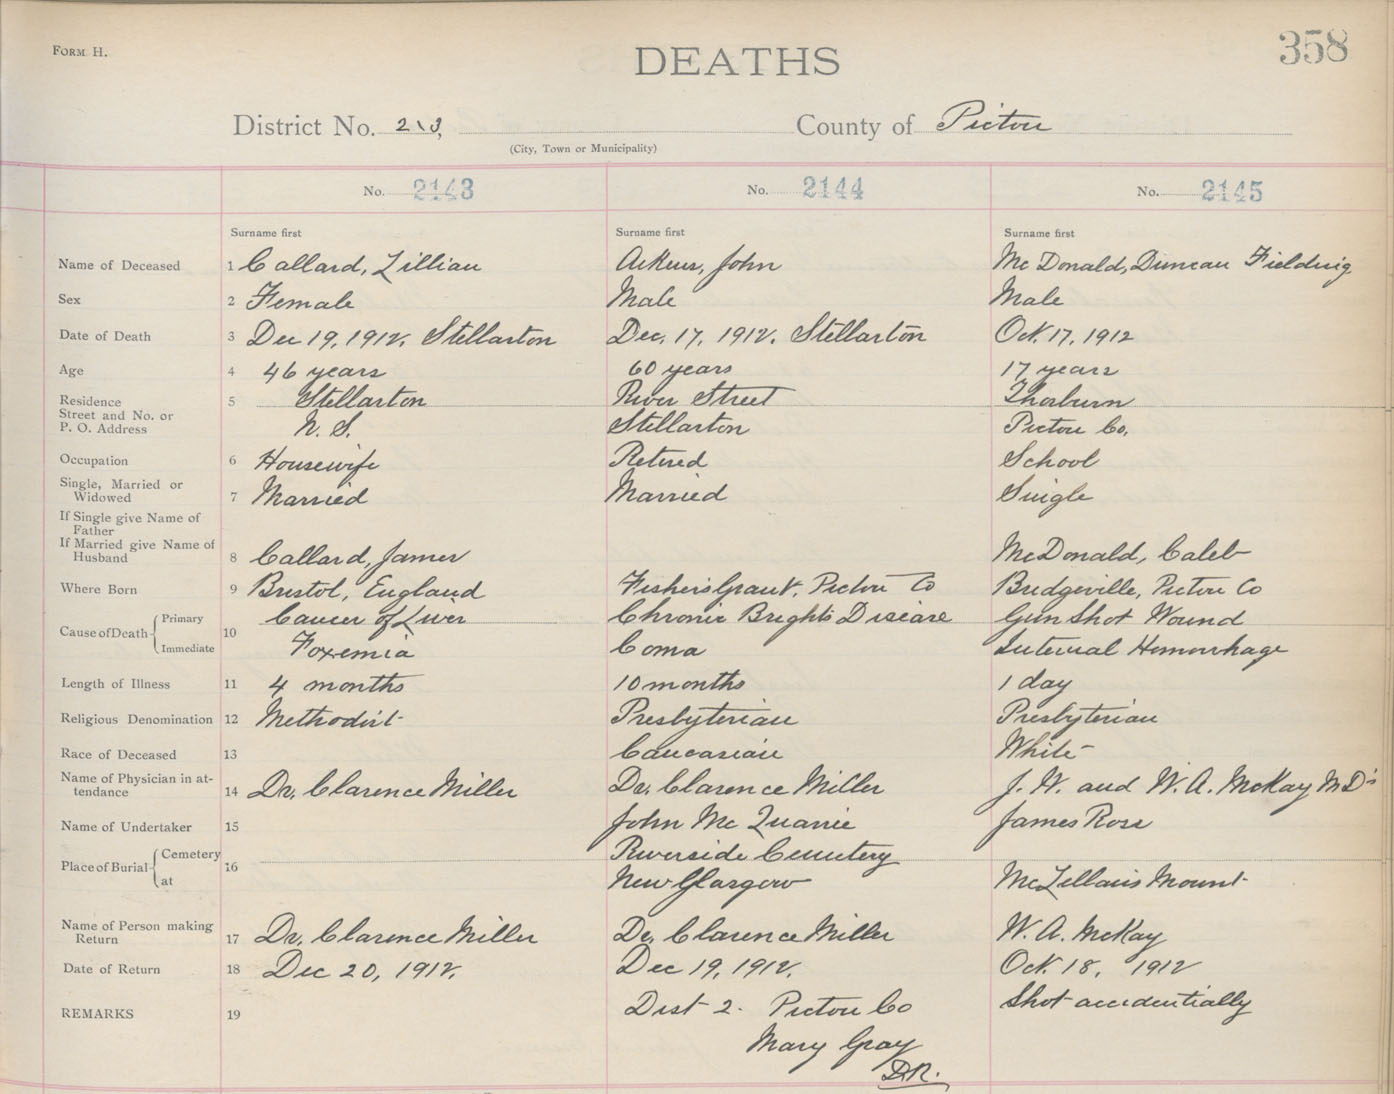 FORM H.
DEATHS
358
District No. 2\3, County of Pictou
(City, Town or Municipality)
No. 2143 No. 2144 No. 2145
Surname first Surname first Surname first
Name of Deceased 1 Callard, Lillian Aikens, John McDonald, Duncan Fielding
Sex 2 Female Male Male
Date of Death 3 Dec 19, 1912. Stellarton Dec. 17, 1912. Stellarton Oct. 17, 1912
Age 4 46 years 60 years 17 years
Residence 5 Stellarton River Street Thorburn
Street and No. or
P. O. Address N. S. Stellarton Pictou Co.
Occupation 6 Housewife Retired School
Single, Married or
Widowed 7 Married Married Single
If Single give Name of
Father
If Married give Name of
Husband 8 Callard, James McDonald, Caleb
Where Born 9 Bristol, England Fisher's Grant, Pictou Co Bridgeville, Pictou Co
Cause of Death 10 Primary Cancer of Liver Chronic Brights Disease Gun Shot Wound
Immediate Toxemia Coma Internal Hemorrhage
Length of Illness 11 4 months 10 months 1 day
Religious Denomination 12 Methodist Presbyterian Presbyterian
Race of Deceased 13 Caucasian White
Name of Physician in at-
tendance 14 Dr. Clarence Miller Dr. Clarence Miller J. W. and W. A. McKay M D's
Name of Undertaker 15 John McQuarrie James Ross
Place of Burial 16 Cemetery Riverside Cemetery
at New Glasgow McLellan's Mount
Name of Person making
Return 17 Dr. Clarence Miller Dr. Clarence Miller W. A. McKay
Date of Return 18 Dec 20, 1912. Dec 19, 1912. Oct. 18, 1912
REMARKS 19 Dist 2. Pictou Co Shot accidentially
Mary Gray
D.R.